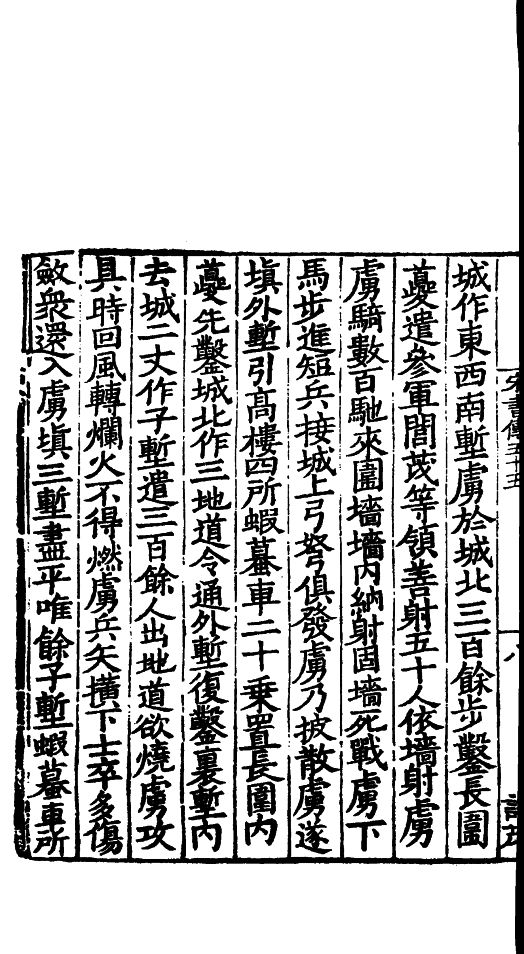 宋書傳五十五
八
城作東西南塹虜於城北三百餘步鑿長圍
夔遣參軍閻茂等領善射五十人依墻射虜
虜騎數百馳來圍墻墻內納射固墻死戰虜下
馬步進短兵接城上弓弩俱發虜乃披散虜遂
填外塹引高樓四所蝦蟇車二十乗置長圍內
夔先鑿城北作三地道令通外塹復鑿裏塹內
去城二丈作子塹遣三百餘人出地道欲燒虜攻
具時回風轉爛火不得燃虜兵矢橫下士卒多傷
斂衆還入虜填三塹盡平唯餘子塹蝦蟇車所